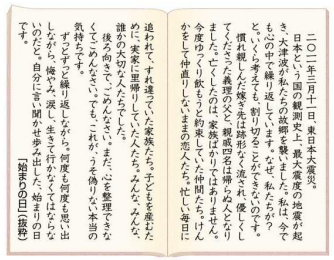 二〇一一年三月十一日、東日本大震災。
日本という国の観測史上、最大震度の地震が起
き、大津波が私たちの故郷を襲いました。私は、今で
も心の中で繰り返しています。なぜ、私たちが？
と。いくら考えても、割り切ることができないのです。
慣れ親しんだ嫁ぎ先は跡形なく流され、優しくし
てくださった義理の父と、親戚四名は帰らぬ人となり
ました。亡くしたのは、家族ばかりではありません。
今度ゆっくり飲もうと約束していた仲間たち。けん
かをして仲直りしないままの恋人たち。忙しい毎日に
追われて、すれ違っていた家族たち。子どもを産むた
めに、実家に里帰りしていた人たち。みんな、みんな、
誰かの大切な人たちでした。
後ろ向きで、ごめんなさい。まだ、心を整理できな
くてごめんなさい。でも、これが、うそ偽りない本当の
気持ちです。
ずっとずっと繰り返しながら、何度も何度も思い出
しながら、悔やみ、涙し、生きて行かなくてはならな
いのだと。自分に言い聞かせ歩み出した、始まりの日
です。
「始まりの日」(抜粋)